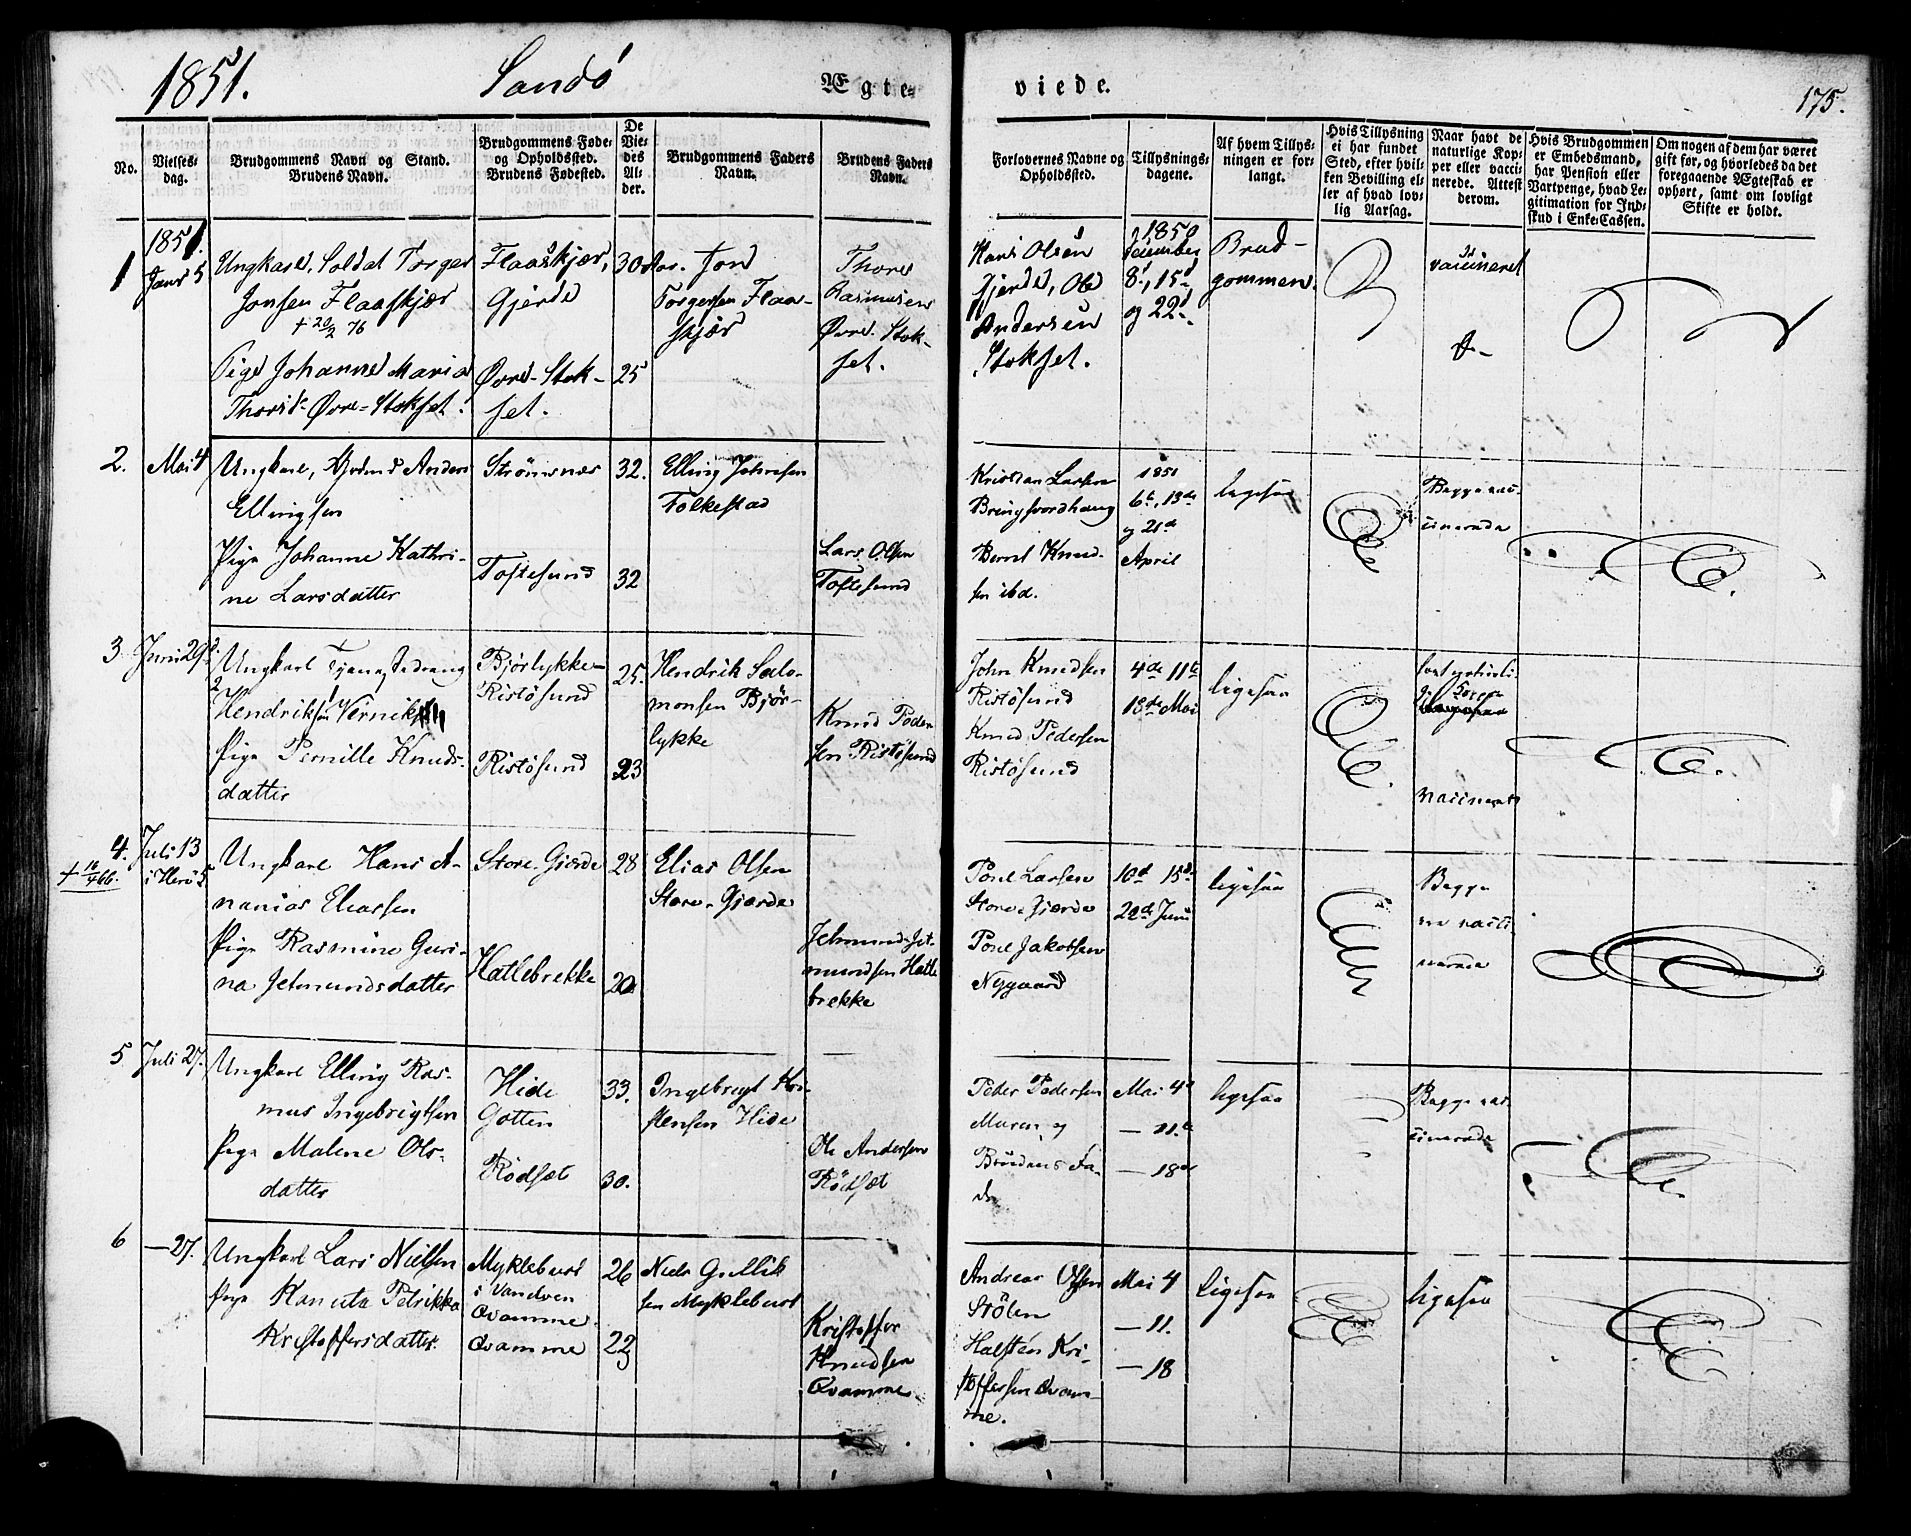 1851. Sandö Ægte
viede. 175.
No.
Vielses-
dag.
Brudgommens Navn og Stand.
Brudens Navn.
Brudgommens Føde-
og Opholdssted.
Brudens Fødested.
De
Vie-
des
Al-
der.
Brudgommens Faders
Navn.
Brudens Faders
Navn.
Forlovernes Navne og
Opholdssted.
Tillysnings-
dagene.
Af hvem Tillys-
ningen er for-
langt.
Hvis Tillysning
ei har fundet
Sted, efter hvil-
ken Bevilling el-
ler af hvad lov-
lig Aarsag.
Naar havt de
naturlige Kop-
per eller vacci-
nerede. Attest
derom.
Hvis Brudgommen
er Embedsmand,
har Pension eller
Vartpenge, hvad Le-
gitimation for Ind-
skud i Enke-Cassen.
Om nogen af dem har været
gift før, og hvorledes da det
foregaaende Ægteskab er
ophørt, samt om lovligt
Skifte er holdt.
1
1851.
Janr 5
Ungkarl, Soldat Torger
Jonsen Flaaskjær
+ 20/2 76
Pige Johanne Maria
Thorsd. Øvre-Stokset.
Flaaskjær,
Gjerde
Øvre-Stok-
set.
30
25
Jon
Torgersen Flaa-
skjær
Thore
Rasmusen
Øvre-Stok-
set.
Hans Olsen
Gjerde, Ole
Andersen
Stokset.
1850
8, 15
og 22
Brud-
gommen.
vaccineret
2.
Mai 4
Ungkarl, Anders
Ellingsen
Pige Johanne Kathri-
ne Larsdatter
Strömsnes
Toftesund
32.
32
Elling Johnsen
Folkestad
Lars Olsen
Toftesund
Kristian Larsen
Bringsvordhaug
Bernt Knud-
sen ibd.
1851
6te, 13de
og 21de
April
ligesaa
Begge vac-
cinerede
3
Juni 29
Ungkarl
Hendriksen Vernik
Pige Pernille Knuds-
datter
Bjørlykke-
Ristösund
Ristösund
25.
23
Hendrik Salo-
monsen Bjør-
lykke
Knud Peder-
sen Ristösund
John Knudsen
Ristösund
Knud Pedersen
Ristösund
4de 11te
18de Mai
ligesaa
vaccineret
4.
+ 16/4 66.
Juli 13
i Herö
Ungkarl Hans A-
nanias Eliassen
Pige Rasmine Guri-
na Jetmundsdatter
Store-Gjærde
Hatlebrekke
28
20
Elias Olsen
Store-Gjærde
Jetmund Jet-
mundsen Hatle
brekke
Poul Larsen
Store-Gjærde
Poul Jakobsen
Nygaard
10de 15de
22de Juni
ligesaa
Begge
nerede
5
Juli 27.
Ungkarl Elling Ras-
mus Ingebrigtsen
Pige Malene Ols-
datter
Hide
Gotten
Rödsæt
33.
30.
Ingebrigt Kri-
stensen Hide
Ole Andersen
Rödsæt
Peder Pedersen
Muren og
Brudens Fa-
der
Mai 4de
— 11te
— 18de
ligesaa
Begge vac-
cinerede
6
— 27.
Ungkarl Lars Nielsen
Pige Kanuta Petrikka
Kristoffersdatter
Myklebust
i Vandven
Qvamme.
Qvamme
26
22
Niels Gullik
sen Myklebust
Kristoffer
Knudsen
Qvamme
Andreas Olsen
Stölen
Halsten Kri-
stoffersen Qvam-
me.
Mai 4
— 11.
— 18
ligesaa
ligesaa